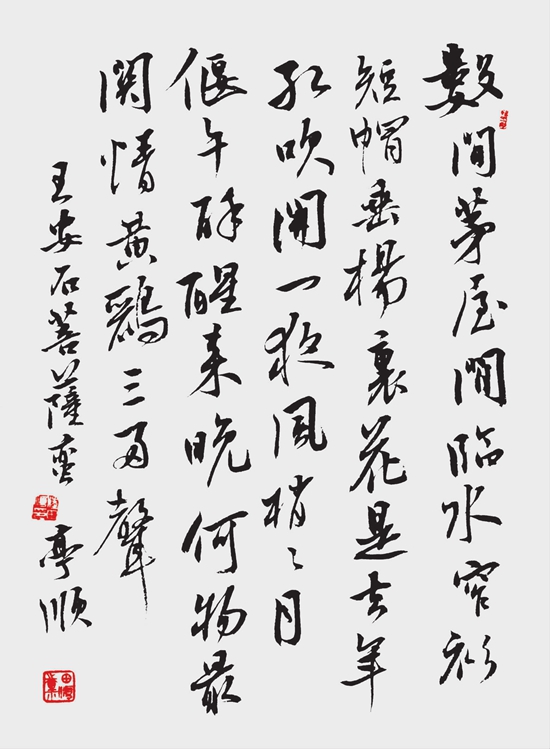 數間茅屋閒臨水窄衫
短帽垂楊裏花是去年
紅吹開一夜風梢〻月
偃午醉醒來晚何物最
關情黃鸝三兩聲
王安石菩薩蠻 亭順